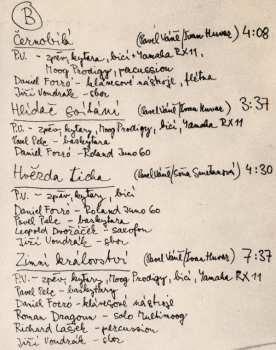 B
Černobílá (Pavel Váně/Ivan Huvar) 4:08
P.V. - zpěv, kytara, bicí + Yamaha RX11,
Moog Prodigy, percussion
Daniel Forró - klávesové nástroje, flétna
Jiří Vondrák - sbor
Hlídač soužání (Pavel Váně/Ivan Huvar) 3:37
P.V. - zpěv, kytary, Moog Prodigy, bicí, Yamaha RX11
Pavel Pelc - baskytara
Daniel Forró - Roland Juno 60
Hvězda ticha (Pavel Váně/Soňa Smetanová) 4:30
P.V. - zpěv, kytary, bicí
Daniel Forró - Roland Juno 60
Pavel Pelc - baskytara
Leopold Dvořáček - saxofon
Jiří Vondrák - sbor
Zimní království (Pavel Váně/Ivan Huvar) 7:37
P.V. - zpěv, kytary, Moog Prodigy, bicí, Yamaha RX11
Pavel Pelc - baskytara
Daniel Forró - klávesové nástroje
Roman Dragoun - solo Multimoog
Richard Lašek - percussion
Jiří Vondrák - sbor